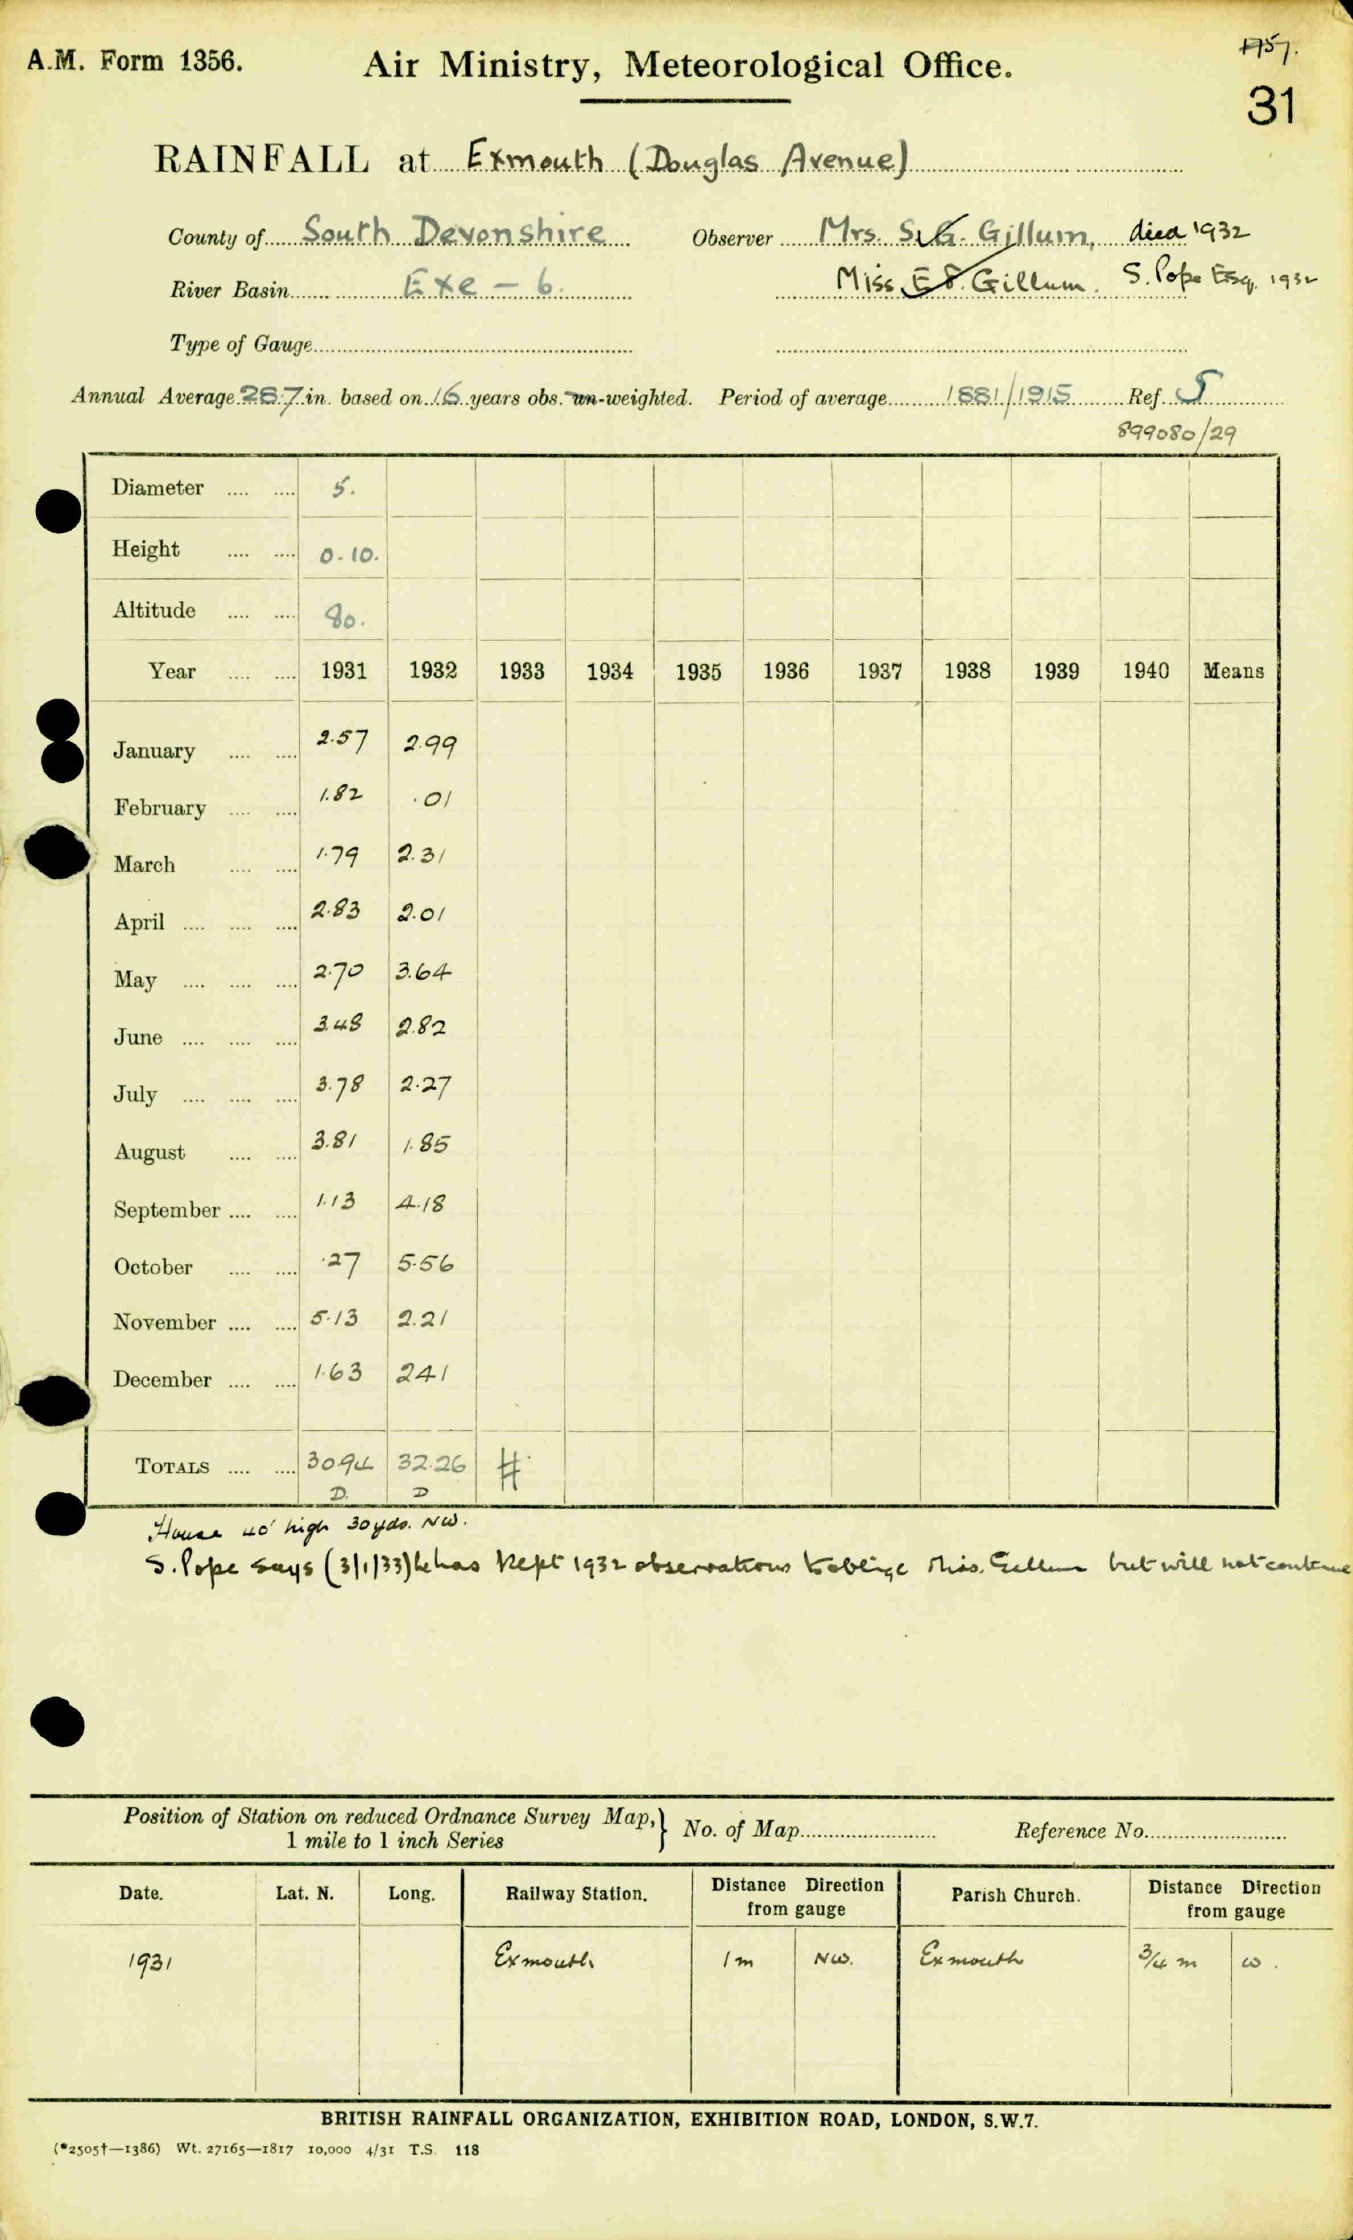 1757.
A.M. Form 1356. Air Ministry, Meteorological Office. 31
RAINFALL at Exmouth (Douglas Avenue)
County of South Devonshire Observer Mrs. S. G. Gillum, died 1932
River Basin Exe - 6. Miss Gillum. S. Pope Esq. 1932
Type of Gauge
Annual Average 28.7 in. based on 16 years obs. un-weighted. Period of average 1881/1915 Ref. S
899080/29
Diameter 5.
Height 0-10.
Altitude 80.
Year 1931 1932 1933 1934 1935 1936 1937 1938 1939 1940 Means
January 2.57 2.99
February 1.82 .01
March 1.79 2.31
April 2.83 2.01
May 2.70 3.64
June 3.48 2.82
July 3.78 2.27
August 3.81 1.85
September 1.13 4.18
October .27 5.56
November 5.13 2.21
December 1.63 2.41
TOTALS 30.94 32.26 #
D. D
House 40' high 30 yds. NW.
S. Pope says (3/1/33) he has kept 1932 observations to oblige Miss. Gillum but will not continue
Position of Station on reduced Ordnance Survey Map,} No. of Map Reference No.
1 mile to 1 inch Series
Date. Lat. N. Long. Railway Station. Distance Direction from gauge Parish Church. Distance Direction from gauge
1931 Exmouth 1 m NW. Exmouth 3/4 m W.
BRITISH RAINFALL ORGANIZATION, EXHIBITION ROAD, LONDON, S.W.7.
(*2505†—1386) Wt. 27165—1817 10,000 4/31 T.S. 118